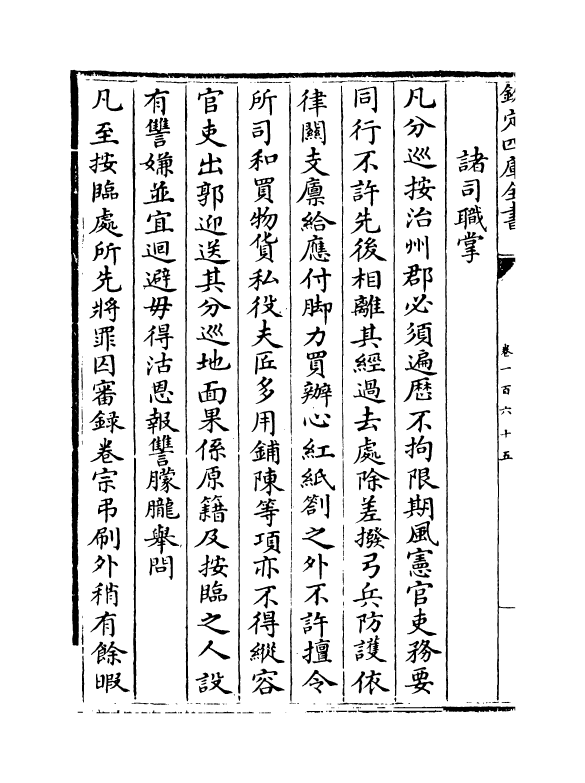 欽定四庫全書
卷一百六十五
諸司職掌
凡分巡按治州郡必須遍歴不拘限期風憲官吏務要
同行不許先後相離其經過去處除差撥弓兵防護依
律關支廪給應付脚力買辦心紅紙劄之外不許擅令
所司和買物貨私役夫匠多用鋪陳等項亦不得縱容
官吏出郭迎送其分巡地面果係原籍及按臨之人設
有讐嫌並宜迴避毋得沽恩報讐朦朧舉問
凡至按臨處所先將罪囚審録卷宗弔刷外稍有餘暇